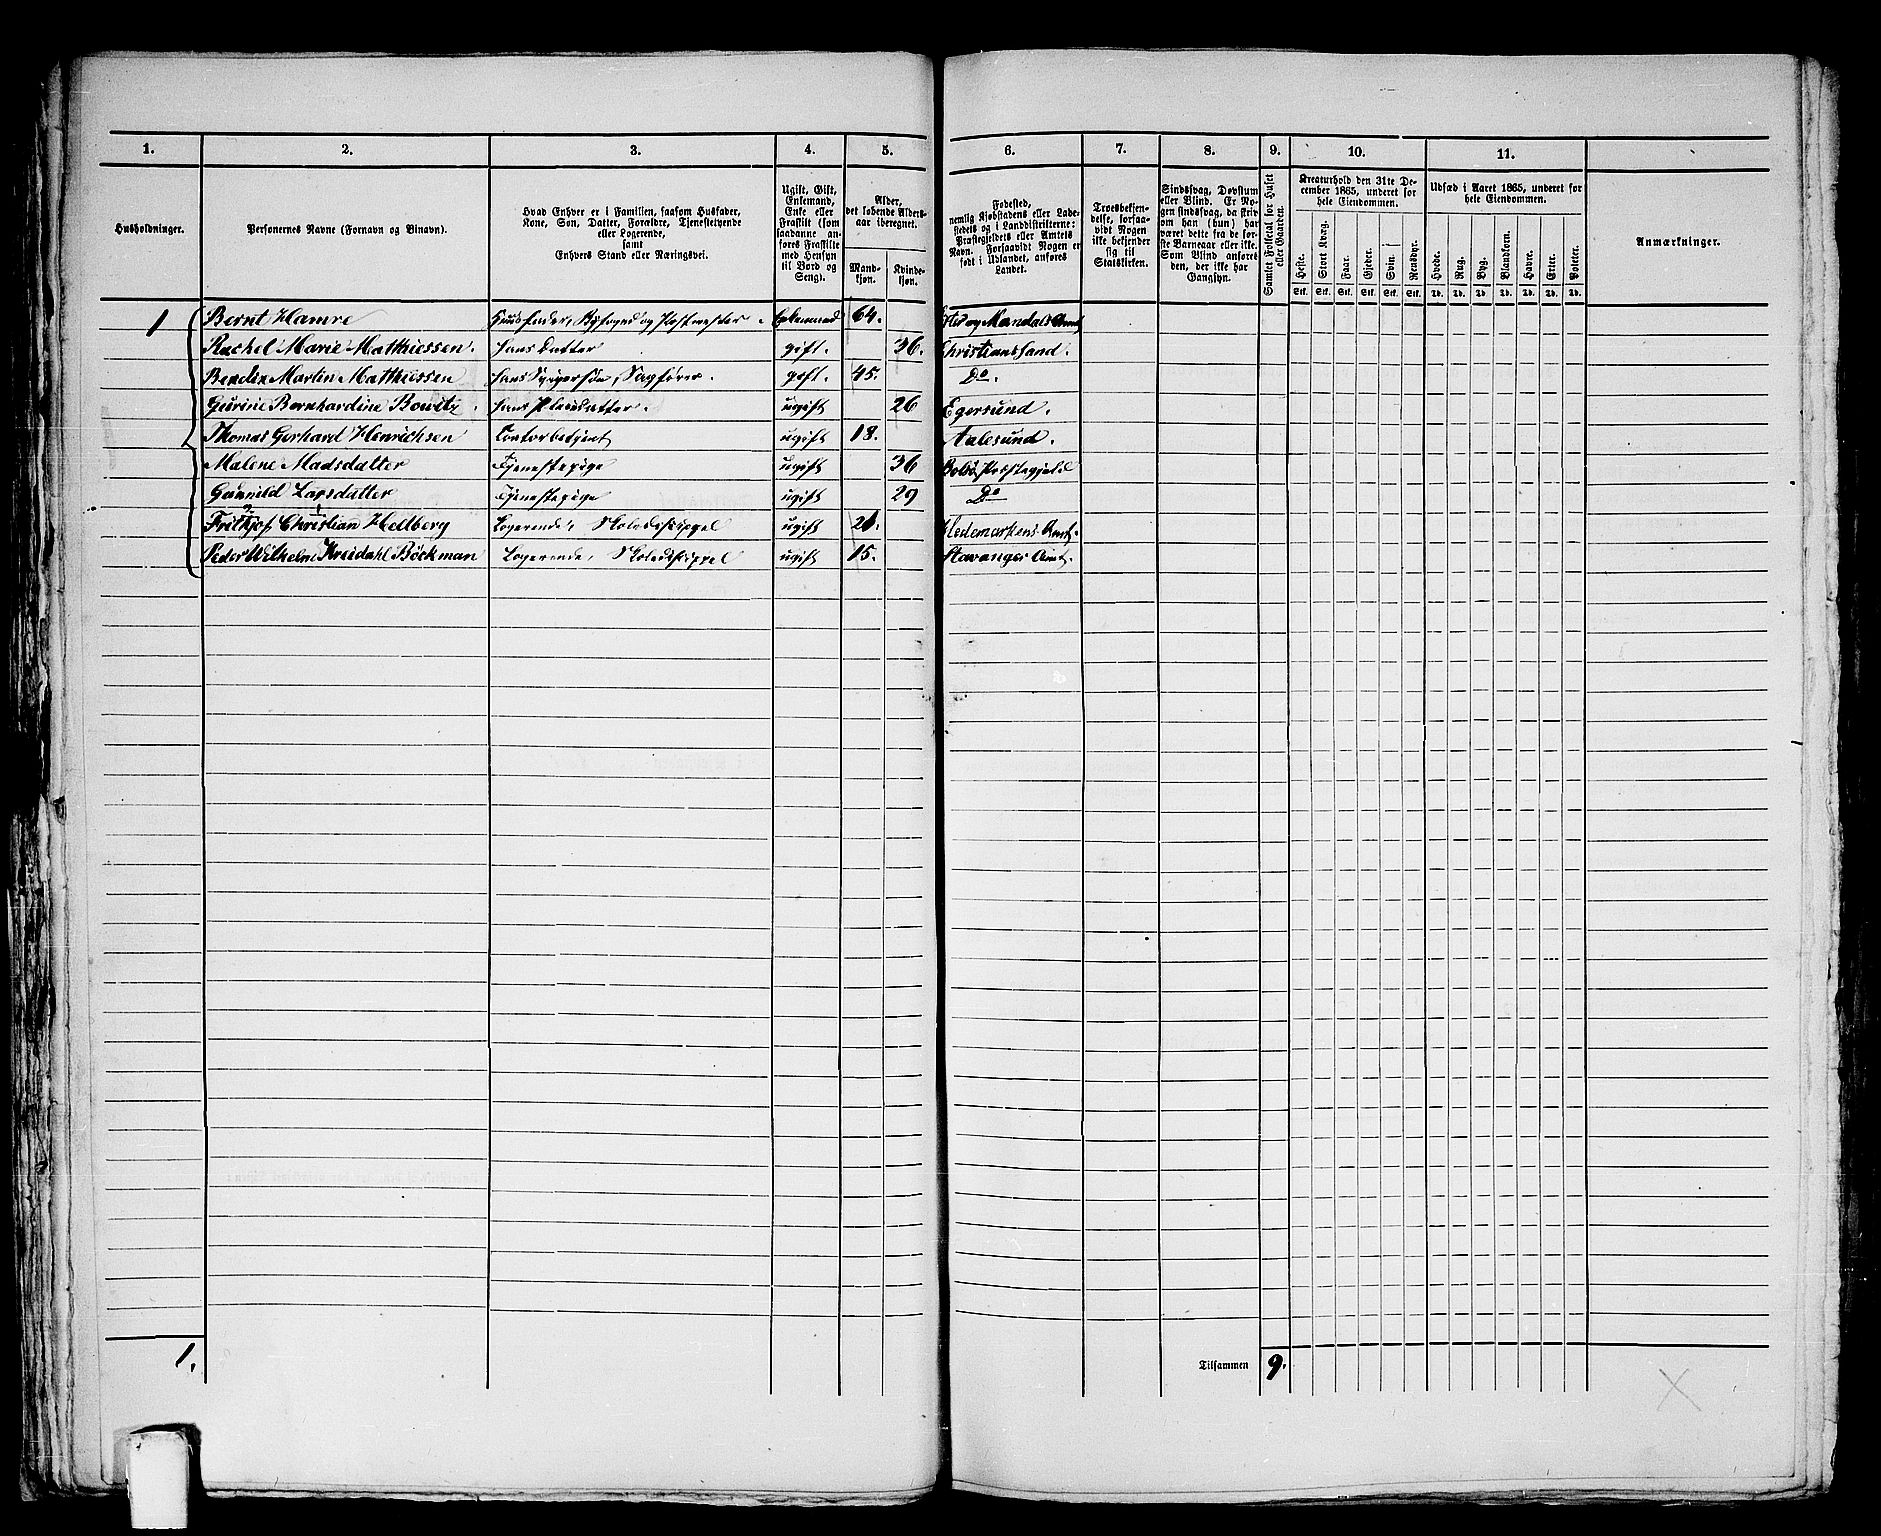 1. 2. 3. 4. 5. 6. 7. 8. 9. 10. 11.
Husholdninger.
Personernes Navne (Fornavn og Tilnavn).
Hvad Enhver er i Familien, saasom Husfader,
Kone, Søn, Datter, Forældre, Tjenestetyende
eller Logerende,
samt
Enhvers Stand eller Næringsvei.
Ugift, Gift,
Enkemand,
Enke eller
Fraskilt (som
saadanne an-
føres Fraskilte
med Hensyn
til Bord og
Seng).
Alder,
det løbende Alders-
aar iberegnet.
Mand-
kjøn.
Kvinde-
kjøn.
Fødested,
nemlig Kjøbstadens eller Lade-
stedets og i Landdistrikterne:
Præstegjeldets eller Amtets
Navn. Forsaavidt Nogen er
født i Udlandet, anføres
Landet.
Troesbekjen-
delse, forsaa-
vidt Nogen
ikke bekjender
sig til
Statskirken.
Sindssvag, Døvstum
eller Blind. Er No-
gen sindssvag, da skri-
ves om han (hun) har
været dette fra de før-
ste Barneaar eller ikke.
Som Blind anføres
den, der ikke har
Gangsyn.
Samlet Folketal for Huset
eller Gaarden.
Kreaturhold den 31te De-
cember 1865, underet for
hele Eiendommen.
Heste. Stort Kvæg. Faar. Gjeder. Svin. Rensdyr.
Stk. Stk. Stk. Stk. Stk. Stk.
Udsæd i Aaret 1865, underet for
hele Eiendommen.
Hvede. Rug. Byg. Blandkorn. Havre. Erter. Poteter.
Td. Td. Td. Td. Td. Td. Td.
Anmærkninger.
1 Bernt Hamre Huusfader, Byfoged og Postmester. Enkemand 64. Lister og Mandals Amt
Rachel Marie Matthiessen. Hans Datter gift. 36. Christianssand.
Bendix Martin Matthiessen Hans Svigersøn, Sagfører. gift. 45. Do.
Gurine Bernhardine Bowitz. Hans Pleiedatter. ugift 26 Egersund.
Thomas Gerhard Henrichsen Contorbetjent ugift 18. Aalesund.
Malene Madsdatter Tjenestepige ugift 36 Bolsø Præstegjeld
Gunnild Larsdatter Tjenestepige ugift 29 Do
Frithjof Christian Hellberg Logerende, Skoledscippel ugift 21. Hedemarkens Amt.
Peder Wilhelm Kreidahl Bøckman Logerende, Skoledscippel ugift 15. Stavanger Amt.
1.
Tilsammen 9.